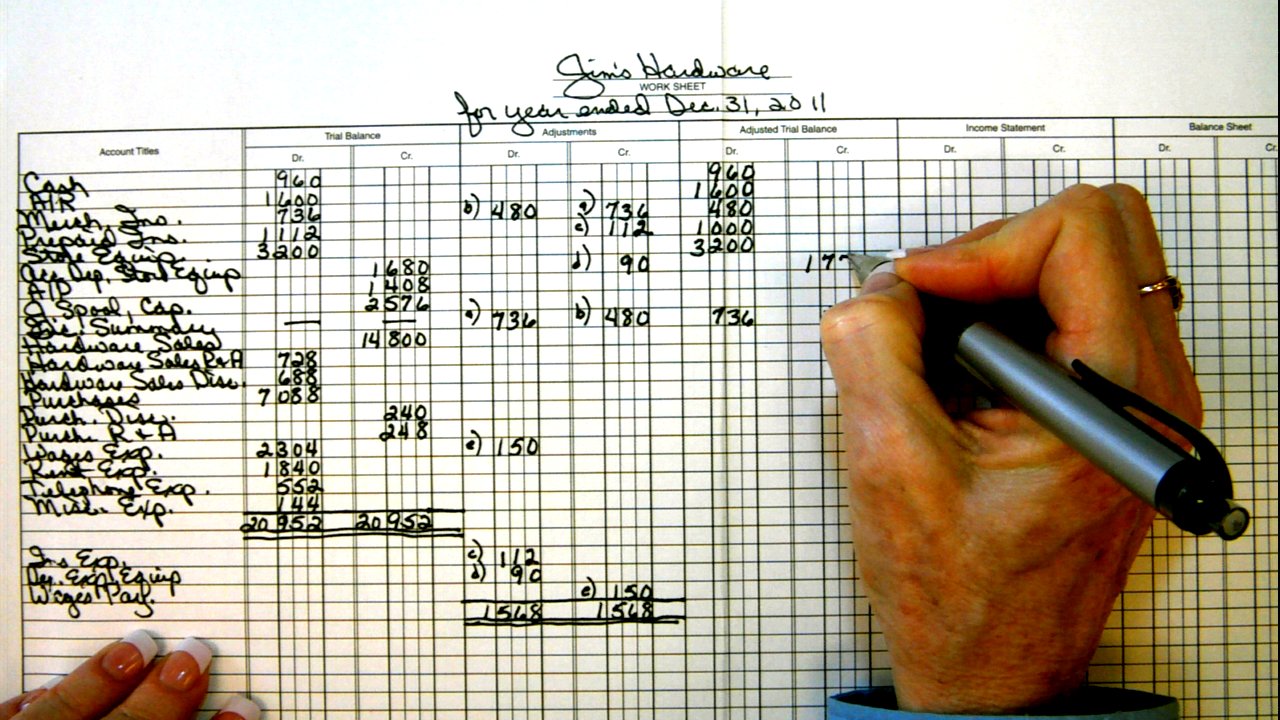 Jim's Hardware
WORK SHEET
for year ended Dec. 31, 2011
Account Titles Trial Balance Adjustments Adjusted Trial Balance Income Statement Balance Sheet
Dr. Cr. Dr. Cr. Dr. Cr. Dr. Cr. Dr. Cr.
Cash 960 960
A/R 1600 1600
Merch. Ins. 736 b) 480 a) 736 480
Prepaid Ins. 1112 c) 112 1000
Store Equip. 3200 3200
Acc. Dep. Store Equip 1680 d) 90 177
A/P 1408
J. Spool, Cap. 2576
Inc. Summary — — a) 736 b) 480 736
Hardware Sales 14800
Hardware Sales R+A 728
Hardware Sales Disc. 688
Purchases 7088
Purch. Disc. 240
Purch. R + A 248
Wages Exp. 2304 e) 150
Rent Exp. 1840
Telephone Exp. 552
Misc. Exp. 144
20952 20952
Ins. Exp. c) 112
Dep. Exp. Equip d) 90
Wages Pay. e) 150
1568 1568